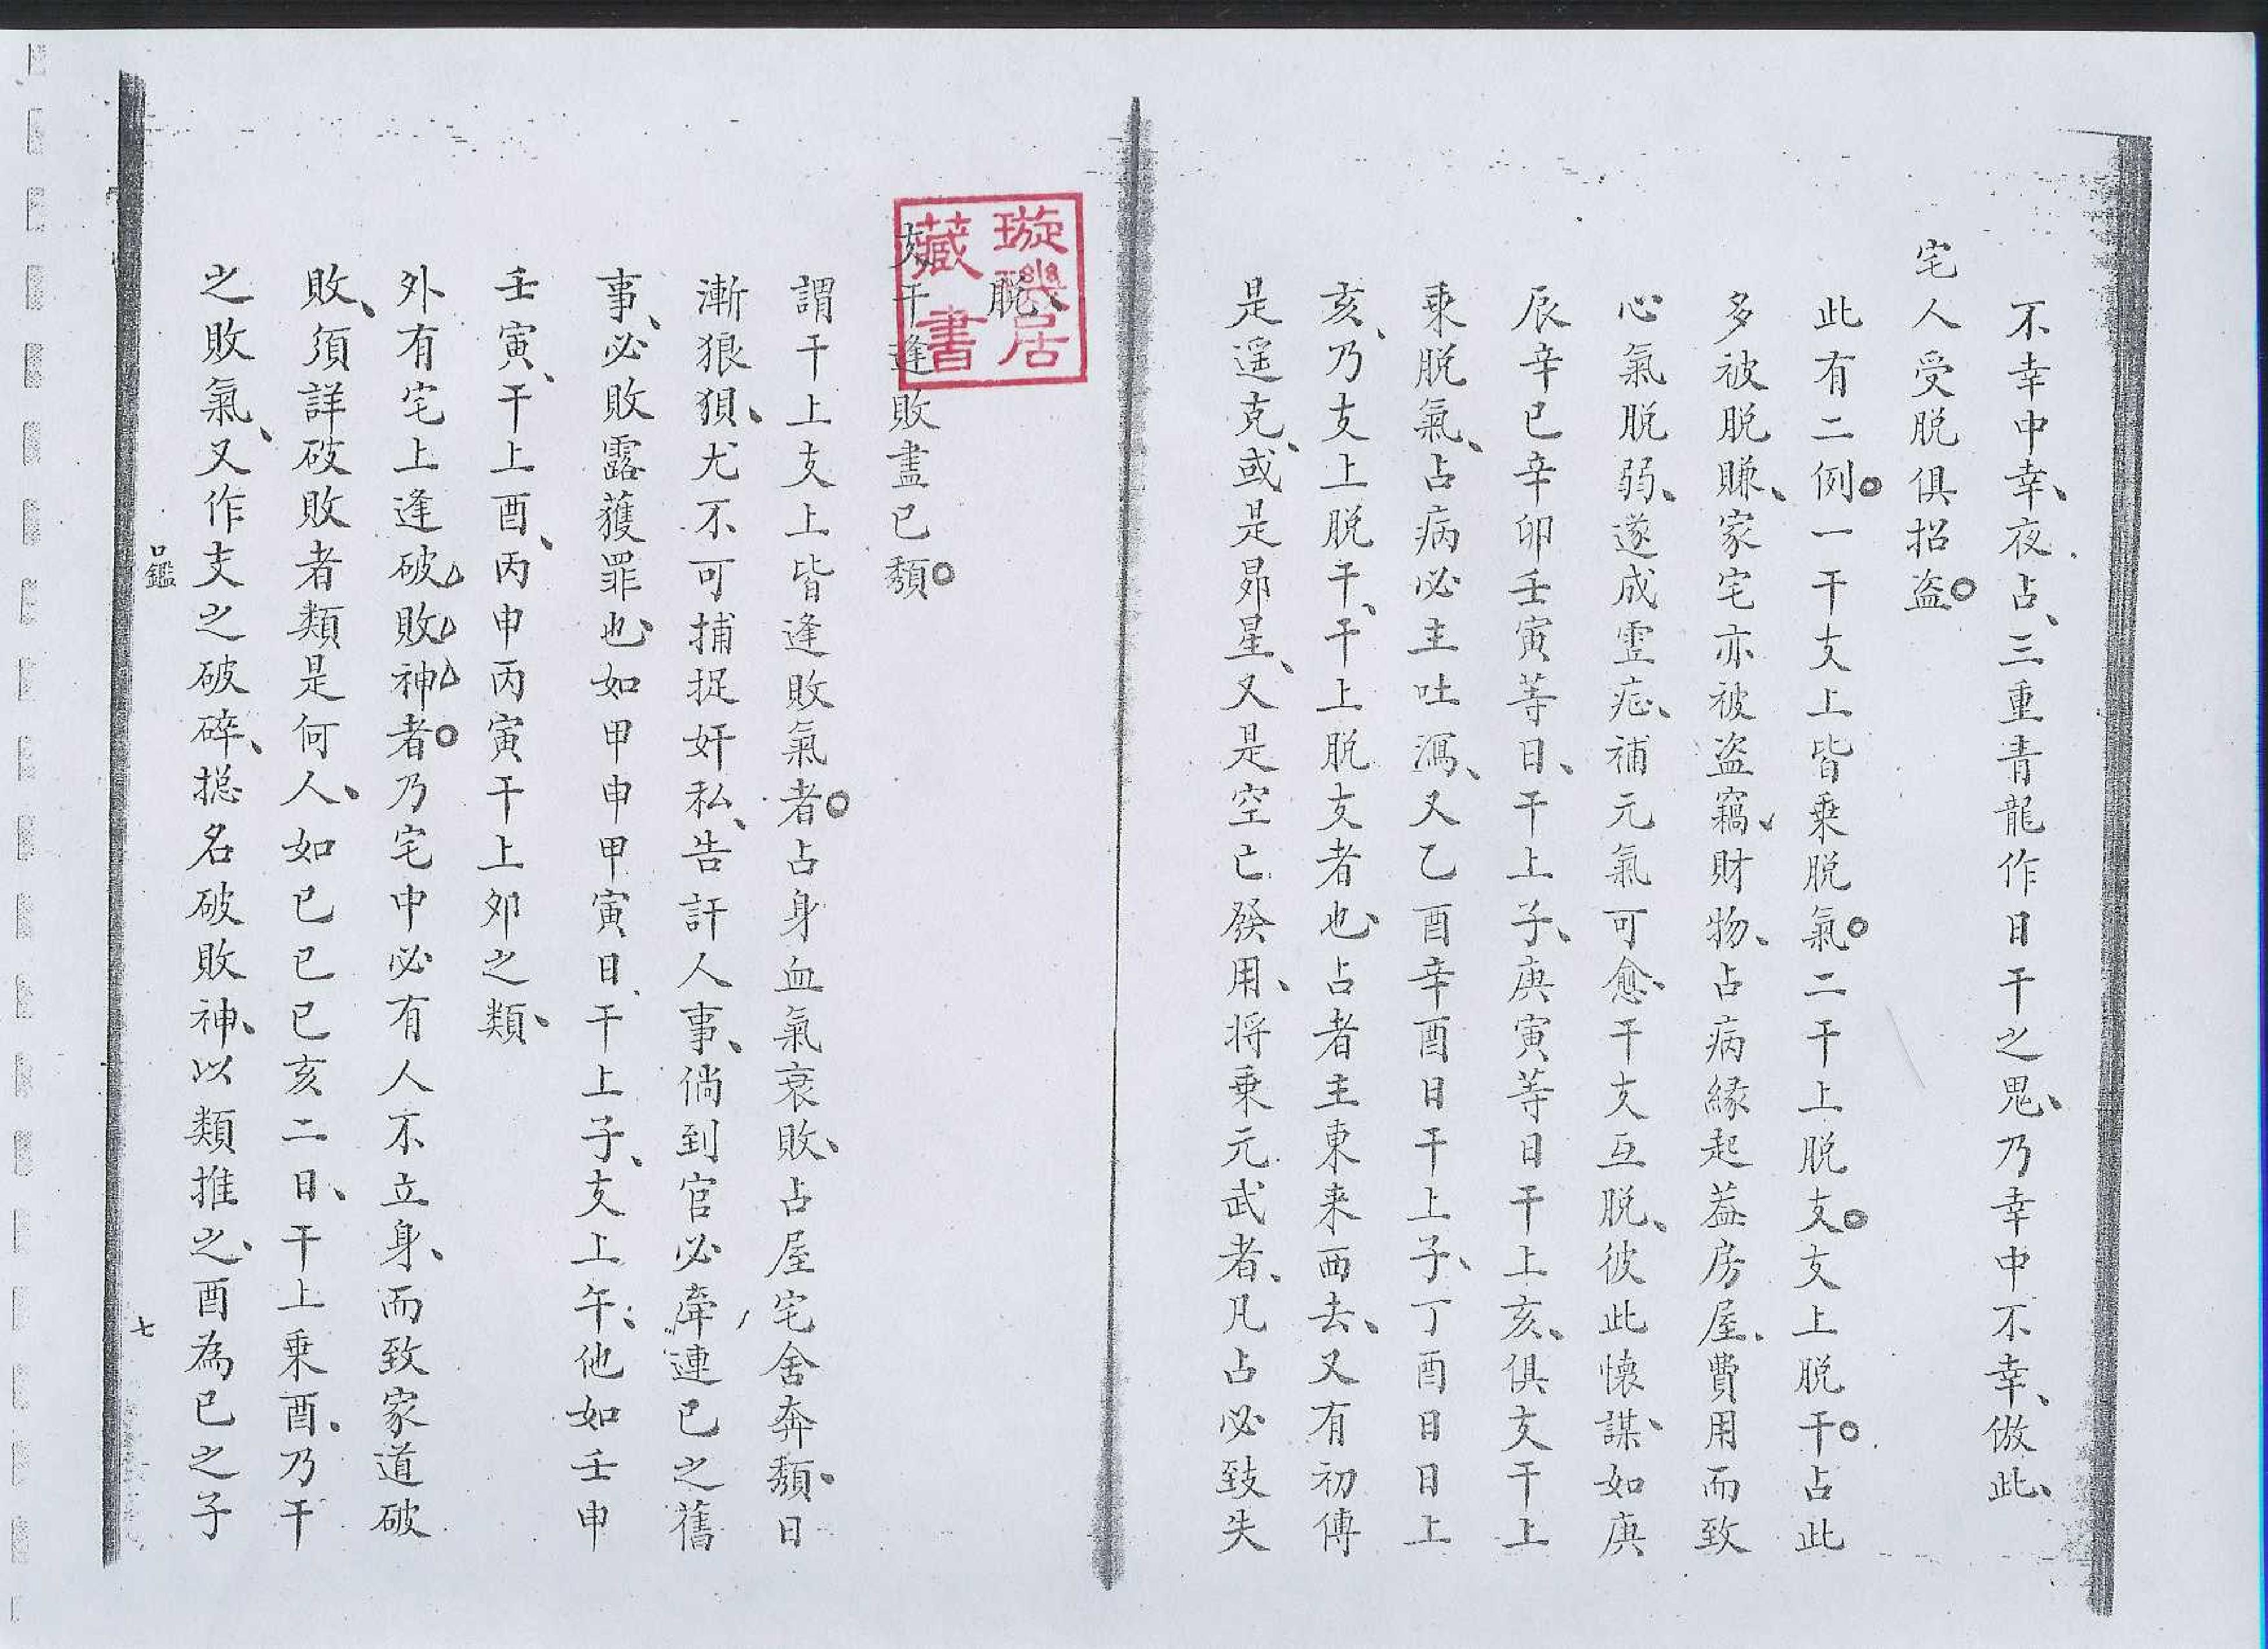 不幸中幸、夜占、三重青龍作日干之鬼、乃幸中不幸、倣此、
宅人受脱俱招盜。
此有二例。一干支上皆乗脱氣。二干上脱支。支上脱干。占此
多被脱賺、家宅亦被盗竊、財物、占病緣起葢房屋、費用而致
心氣脱弱、遂成虚痃、補元氣可愈、干支互脱、彼此懐謀、如庚
辰辛巳辛卯壬寅等日、干上子、庚寅等日干上亥、俱支干上
乗脱氣、占病必主吐瀉、又乙酉辛酉日干上子、丁酉日日上
亥、乃支上脱干、干上脱支者也、占者主東来西去、又有初傳
是遥克、或是昴星、又是空亡發用、将乗元武者、凡占必致失
脱、
支干逢敗盡已頽。
謂干上支上皆逢敗氣者。占身血氣衰敗、占屋宅舍奔頽、日
漸狼狽、尤不可捕捉奸私、告訐人事、倘到官必牽連已之舊
事、必敗露獲罪也、如甲申甲寅日、干上子、支上午、他如壬申
壬寅、干上酉、丙申丙寅干上夘之類、
外有宅上逢破敗神者。乃宅中必有人不立身、而致家道破
敗、須詳破敗者類是何人、如已巳已亥二日、干上乗酉、乃干
之敗氣、又作支之破碎、捴名破敗神、以類推之、酉為已之子
口鑑
七
璇璣居
藏書